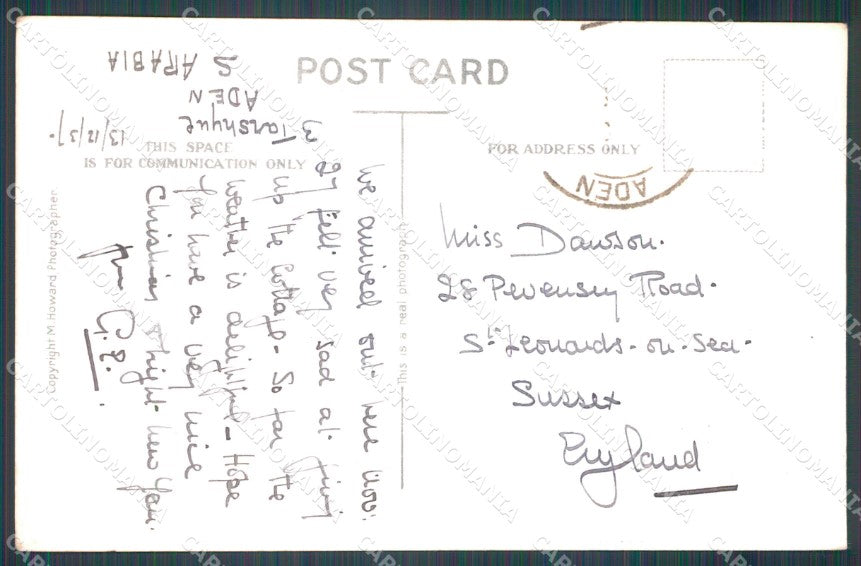 POST CARD
THIS SPACE
IS FOR COMMUNICATION ONLY
FOR ADDRESS ONLY
ADEN
3 Tarshyne
ADEN
S ARABIA
13/12/37.
We arrived out here Nov:
27 felt very sad at giving
up the Cottage - So far the
weather is delightful - Hope
you have a very nice
Christmas & bright New Year.
from G.E.
Miss Dawson.
28 Pevensey Road.
St Leonards-on-Sea-
Sussex
England
This is a real photograph
Copyright M Howard Photographer.
CARTOLINOMANIA